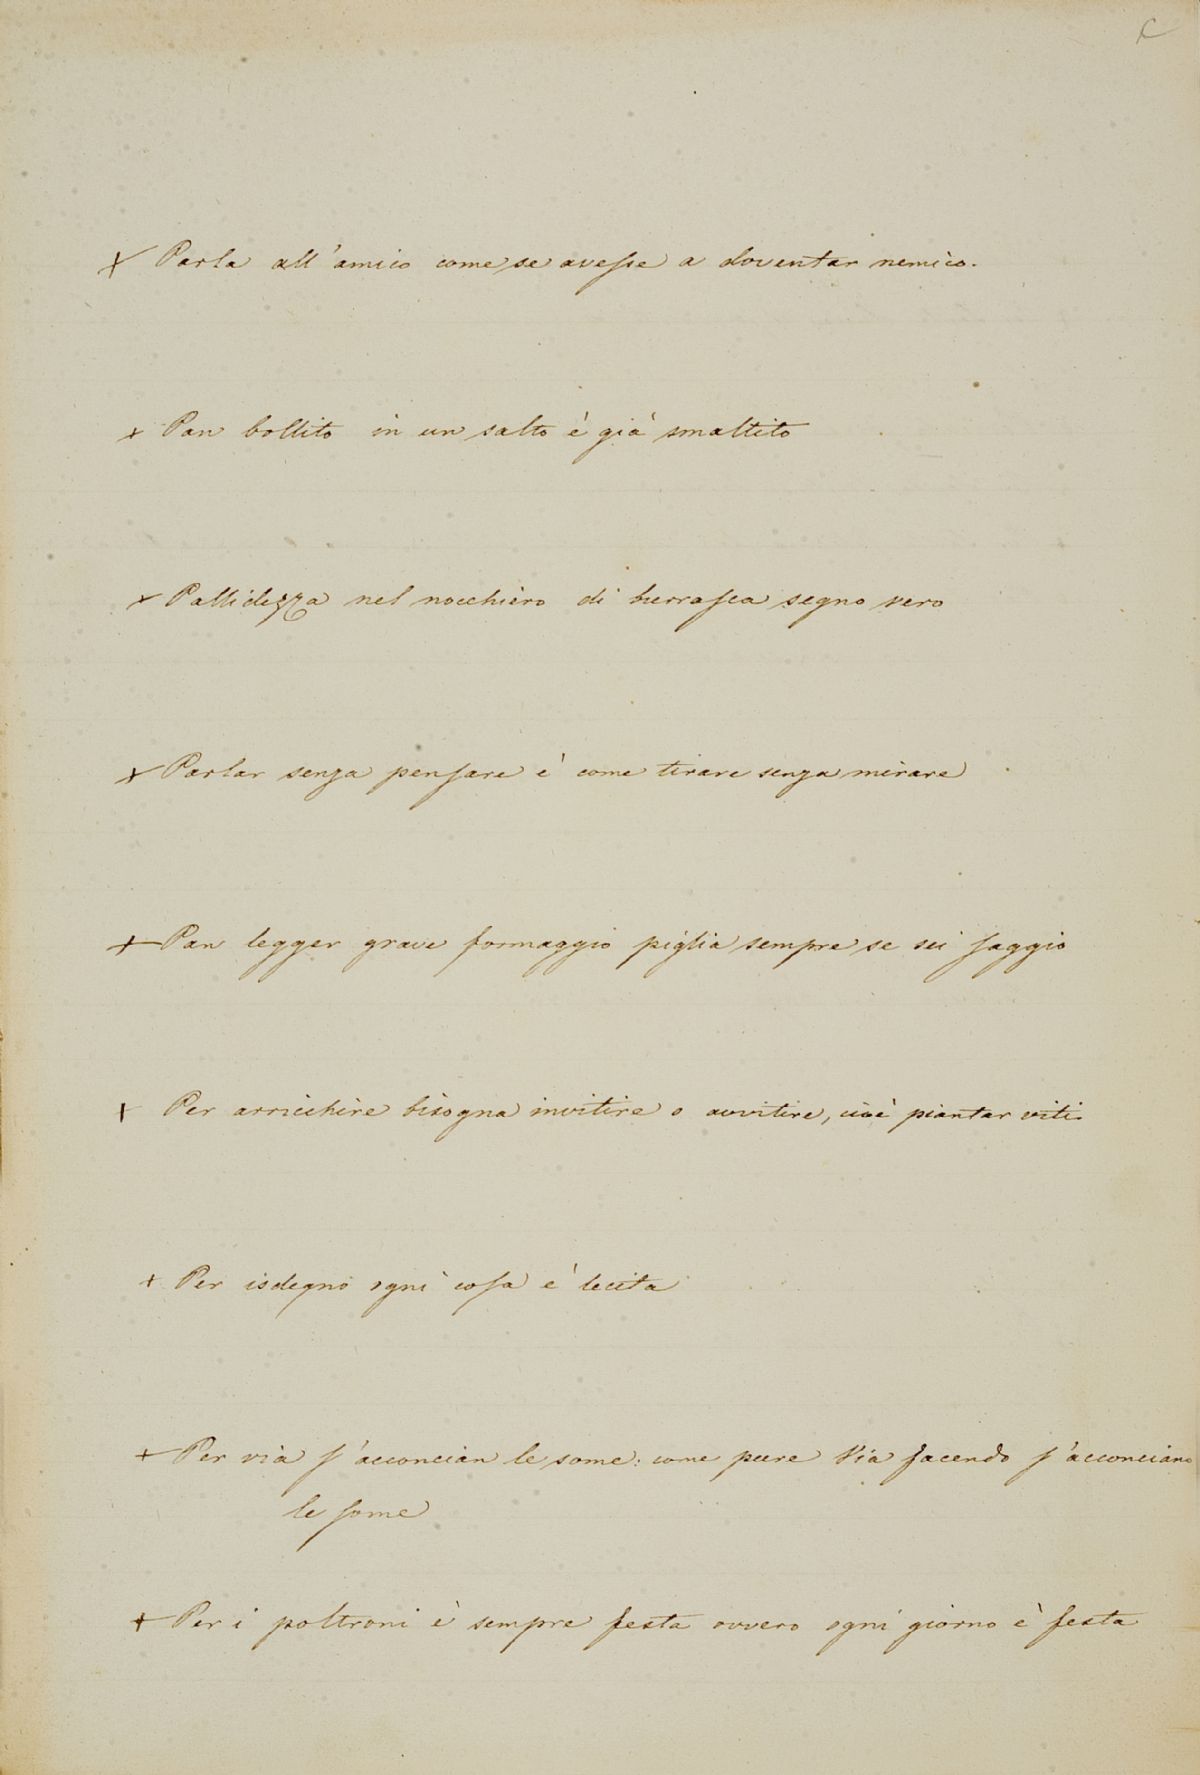 C
+ Parla all'amico come se avesse a doventar nemico.
+ Pan bollito in un salto è già smaltito
+ Pallidezza nel nocchiero di burrasca segno vero
+ Parlar senza pensare è come tirare senza mirare
+ Pan legger grave formaggio piglia sempre se sei saggio
+ Per arricchire bisogna invitire o avvitire, cioè piantar viti.
+ Per isdegno ogni cosa è lecita
+ Per via s'acconcian le some: come pure Via facendo s'acconciano
le some
+ Per i poltroni è sempre festa ovvero ogni giorno è festa